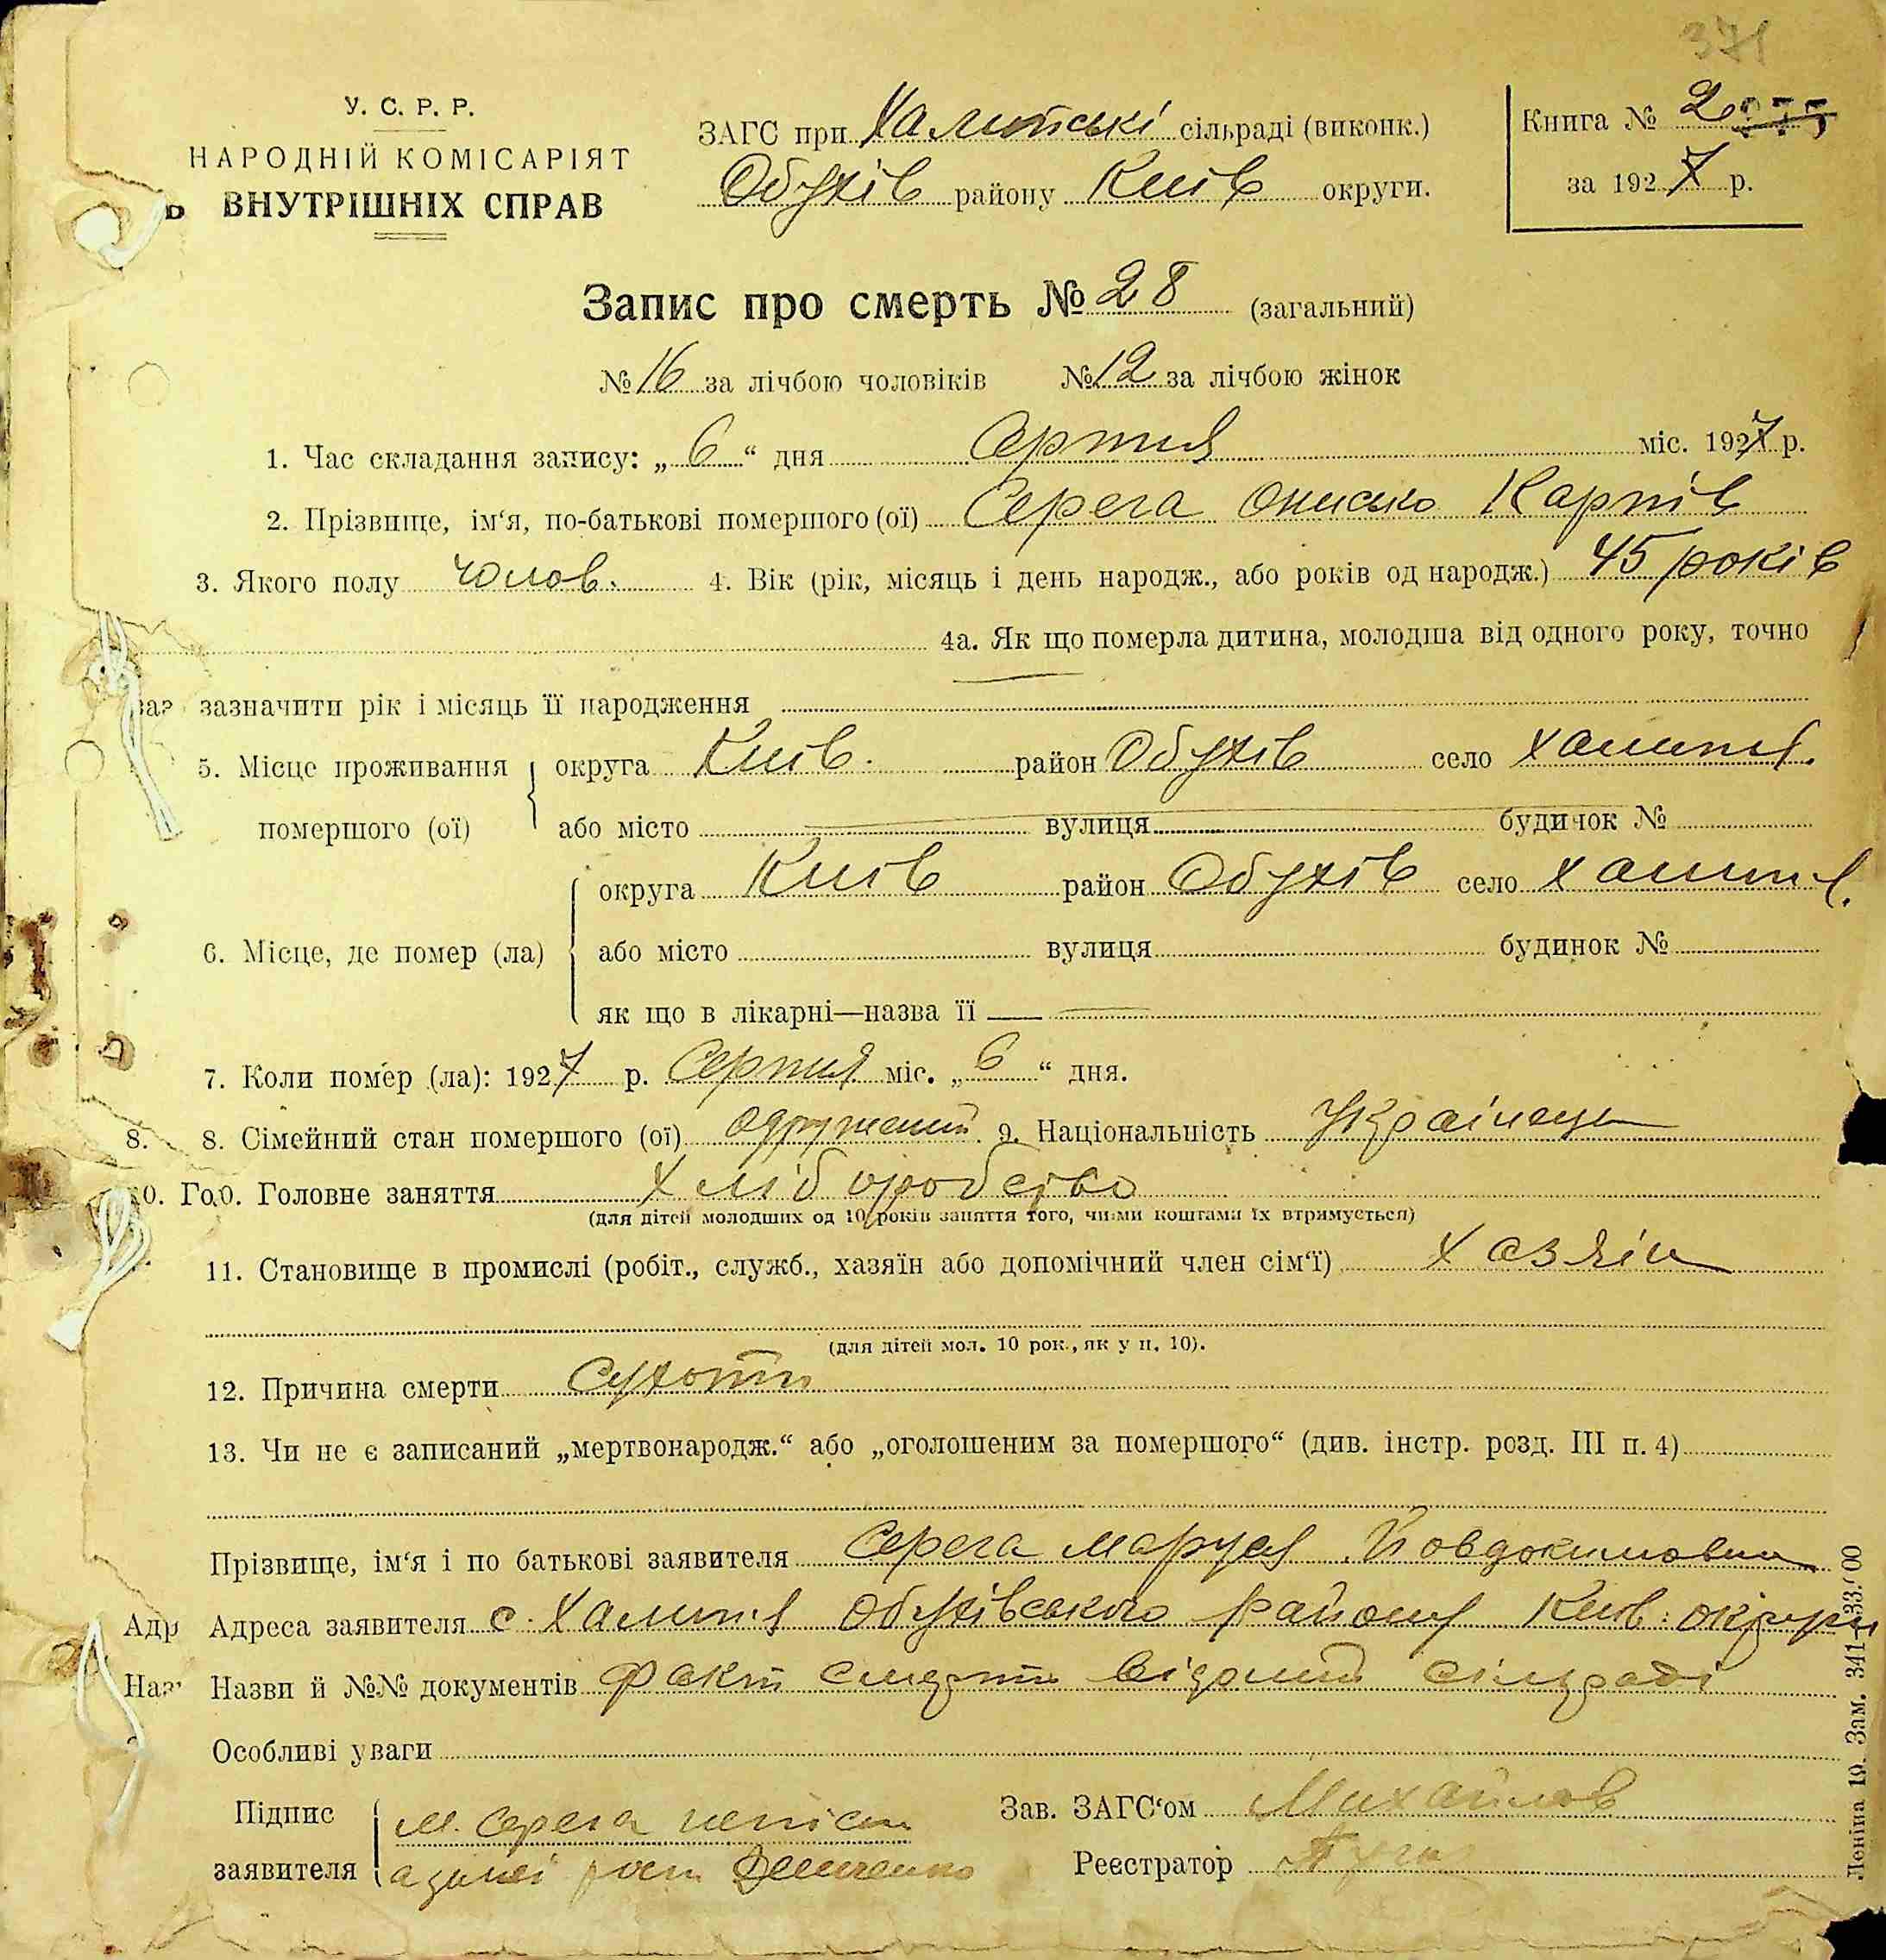 371
У. С. Р. Р.
НАРОДНІЙ КОМІСАРІЯТ
ВНУТРІШНІХ СПРАВ
ЗАГС при Халепські сільраді (виконк.)
Обухів району Київ округи.
Книга № 2
за 1927 р.
Запис про смерть № 28 (загальний)
№ 16 за лічбою чоловіків № 12 за лічбою жінок
1. Час складання запису: „6“ дня Серпня міс. 1927 р.
2. Прізвище, ім‘я, по-батькові помершого (ої) Серега Онисько Карпів
3. Якого полу чолов. 4. Вік (рік, місяць і день народж., або років од народж.) 45 років
4а. Як що померла дитина, молодша від одного року, точно
зазначити рік і місяць її народження
5. Місце проживання помершого (ої) округа Київ. район Обухів село Халепья.
або місто вулиця будинок №
6. Місце, де помер (ла) округа Київ район Обухів село Халепья.
або місто вулиця будинок №
як що в лікарні—назва її —
7. Коли помер (ла): 1927 р. Серпня міс. „6“ дня.
8. Сімейний стан помершого (ої) одружений. 9. Національність Українець
10. Головне заняття Хліборобство
(для дітей молодших од 10 років заняття того, чиїми коштами їх втримується)
11. Становище в промислі (робіт., служб., хазяїн або допомічний член сім‘ї) Хазяїн
(для дітей мол. 10 рок., як у п. 10).
12. Причина смерти Сухоти
13. Чи не є записаний „мертвонародж.“ або „оголошеним за помершого“ (див. інстр. розд. III п. 4)
Прізвище, ім‘я і по батькові заявителя Серега Маруся Йовдокимовна
Адреса заявителя с. Халепья Обухівського району Київ. округи
Назви й №№ документів Факт смерти відомий сільраді
Особливі уваги
Підпис заявителя М. Серега неписм
а за неї росп Демченко
Зав. ЗАГС‘ом Михайлов
Реєстратор
Леніна 19. Зам. 341—33.